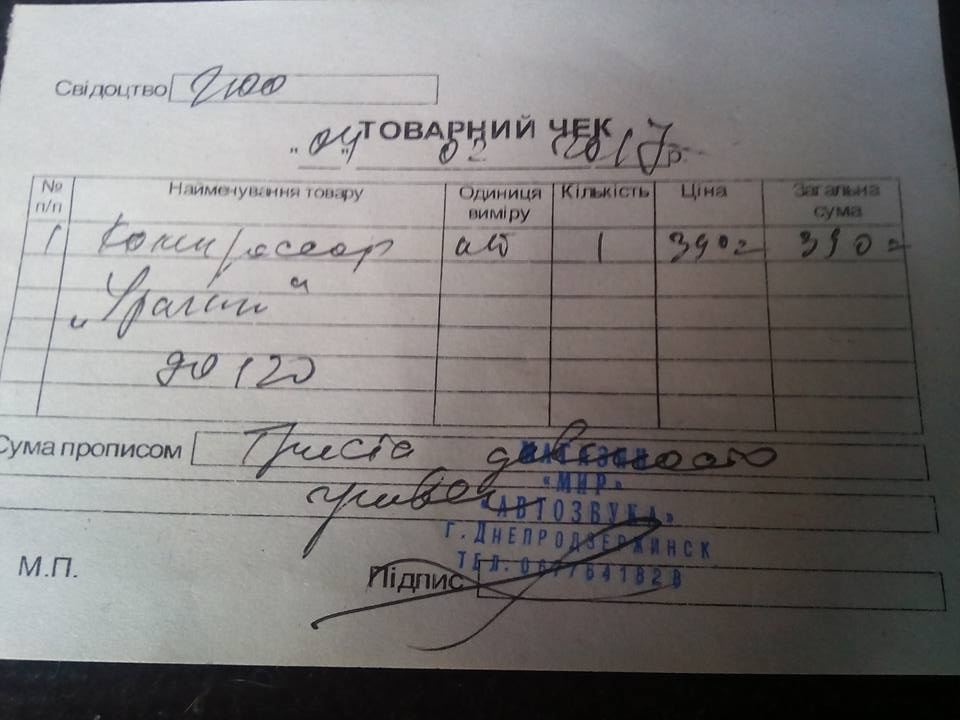 Свідоцтво
ТОВАРНИЙ ЧЕК
"04" 02 2017р.
№ п/п Найменування товару Одиниця виміру Кількість Ціна Загальна сума
1 Компрессор шт 1 390= 390=
"Ураган"
до 120
Сума прописом Триста девяносто
гривен
МАГАЗИН
«МИР»
«АВТОЗВУКА»
Г. ДНЕПРОДЗЕРЖИНСК
ТЕЛ. 0677641828
М.П.
Підпис